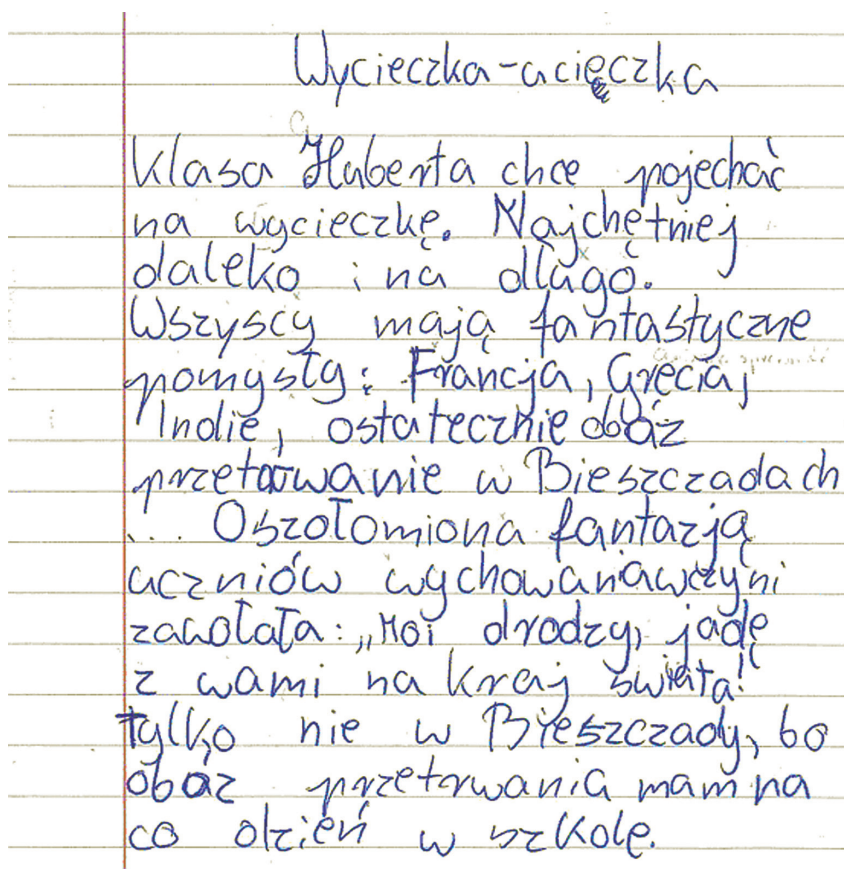 Wycieczka-ucięczka
Klasa Huberta chce pojechać
na wycieczkę. Najchętniej
daleko i na długo.
Wszyscy mają fantastyczne
pomysły: Francja, Grecja,
Indie, ostatecznie obóz
przetrwanie w Bieszczadach
... Oszołomiona fantazją
uczniów wychowaniawczyni
zawołała: „Moi drodzy, jadę
z wami na kraj świata!"
tylko nie w Bieszczady, bo
obóz przetrwania mam na
co dzień w szkole.